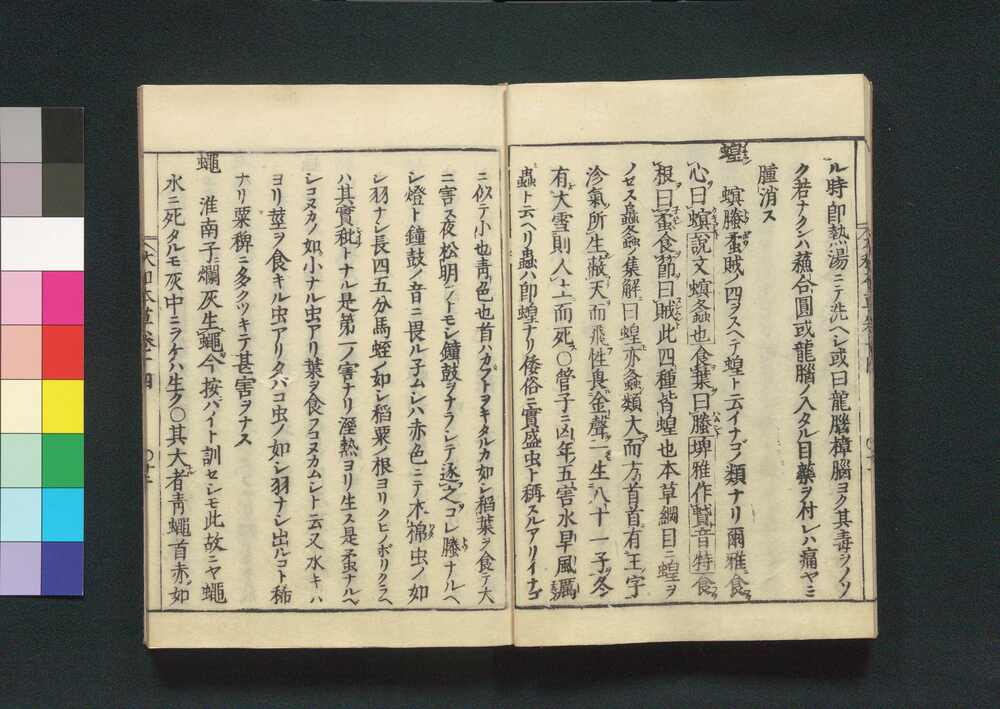 ル時即熱湯ニテ洗ヘシ或曰龍腦樟腦ヨク其毒ヲノソ
ク若ナクンハ蘓合圓或龍腦ノ入タル目藥ヲ付レハ痛ヤミ
腫消ス
蝗
螟螣蟊賊ノ四ヲスヘテ蝗ト云イナゴノ類ナリ爾雅食
心曰螟說文螟蟲也食葉曰螣埤雅作蟘音特食
根曰蟊食節曰賊此四種皆蝗也本草綱目ニ蝗ヲ
ノセス蟲螽ノ集解曰蝗亦螽類大而方首首有王字
沴氣所生蔽天而飛性畏金聲一生八十一子冬
有大雪則入土而死〇管子ニ凶年五害水旱風厲
蟲ト云ヘリ蟲ハ即蝗ナリ倭俗ニ實盛虫ト稱スルアリイナゴ
ニ似テ小也青色也首ハカブトヲキタルカ如シ稻葉ヲ食テ大
ニ害ス夜松明ヲトモシ鐘鼓ヲナラシテ逐之コレ螣ナルヘ
シ燈ト鐘鼓ノ音ニ畏ル子ムシハ赤色ニテ木綿虫ノ如
シ羽ナシ長四五分馬蛭ノ如シ稻粟ノ根ヨリクヒノボリクラヘ
ハ其實秕トナル是第一ノ害ナリ溼熱ヨリ生ス是蟊ナルヘ
シコヌカノ如小ナル虫アリ葉ヲ食フコヌカムシト云又水キハ
ヨリ莖ヲ食キル虫アリタバコ虫ノ如シ羽ナシ出ルコト稀
ナリ粟稗ニ多クツキテ甚害ヲナス
蠅
淮南子ニ爛灰生蠅今按ハイト訓セシモ此故ニヤ蠅
水ニ死タルモ灰中ニヲケハ生ク〇其大者青蠅首赤如
大和本草卷十四